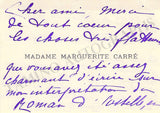 Cher ami merci
de tout coeur pour
les choses très flatteuses
MADAME MARGUERITE CARRÉ
que vous avez été assez
charmant d'écrire sur
mon interprétation du
Roman d'